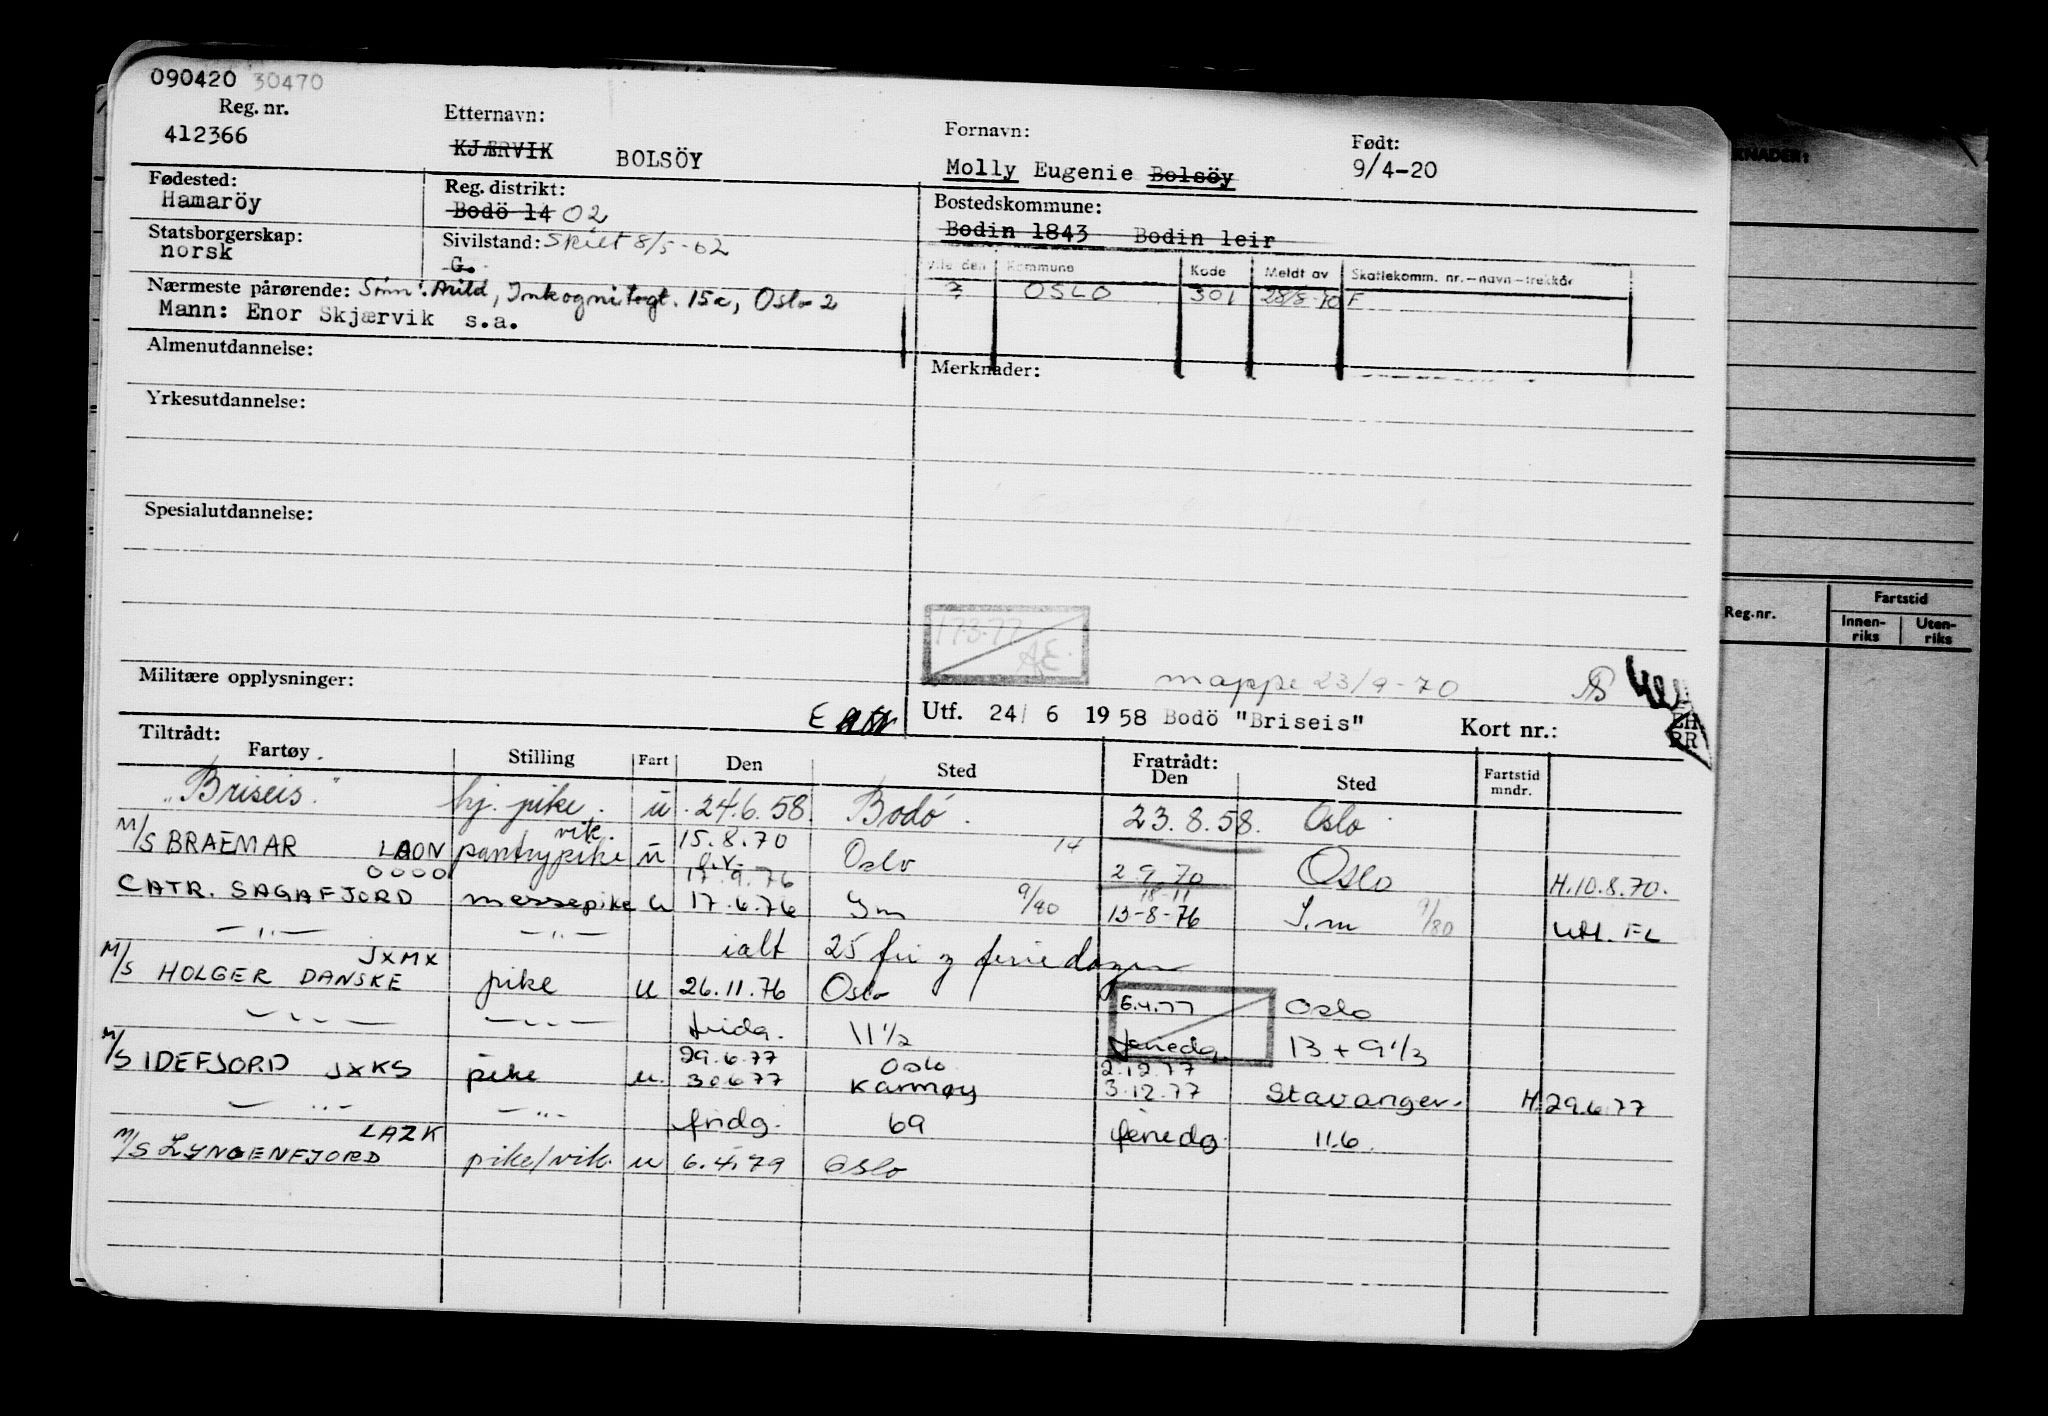 090420 30470
Reg. nr. Etternavn: Fornavn: Født:
412366 KJÆRVIK BOLSÖY Molly Eugenie Bolsöy 9/4-20
Fødested: Reg. distrikt: Bostedskommune:
Hamaröy Bodö 14 02 Bodin 1843 Bodin leir
Statsborgerskap: Sivilstand: Skilt 8/5-62
norsk G.
Kommune Kode Meldt av Skattekomm. nr.-navn-trekkår
? OSLO 301 28/8-70 F
Nærmeste pårørende: Sønn: Arild, Inkognitogt. 15c, Oslo 2
Mann: Enor Skjærvik s.a.
Almenutdannelse: Merknader:
Yrkesutdannelse:
Spesialutdannelse:
17.3.77
AE.
Militære opplysninger: mappe 23/9-70
Utf. 24/ 6 1958 Bodö "Briseis" Kort nr.:
Tiltrådt: Fratrådt:
Fartøy Stilling Fart Den Sted Den Sted Fartstid mndr.
"Briseis" hj. pike. u. 24.6.58. Bodö. 23.8.58. Oslo
vik.
M/S BRAEMAR LAON pantrypike u 15.8.70 Oslo 2.9.70 Oslo H.10.8.70.
0000 17.9.76 18-11
CATR. SAGAFJORD messepike u 17.6.76 9/80 13-8-76 9/80 Utl. FL
—"— —"— ialt 25 fri og feriedager
JXMX
M/S HOLGER DANSKE pike u 26.11.76 Oslo 5.4.77 Oslo
—"— —"— fridg. 11 1/2 feriedg. 13 + 9 1/3
29.6.77 Oslo 2.12.77
M/S IDEFJORD JXKS pike u. 30.6.77 Karmøy 3.12.77 Stavanger. H.29.6.77
—"— —"— fridg. 69 feriedg. 11.6.
LAZK
M/S LYNGENFJORD pike/vik. u 6.4.79 Oslo
KNADER:
Reg.nr. Fartstid
Innen-riks Uten-riks